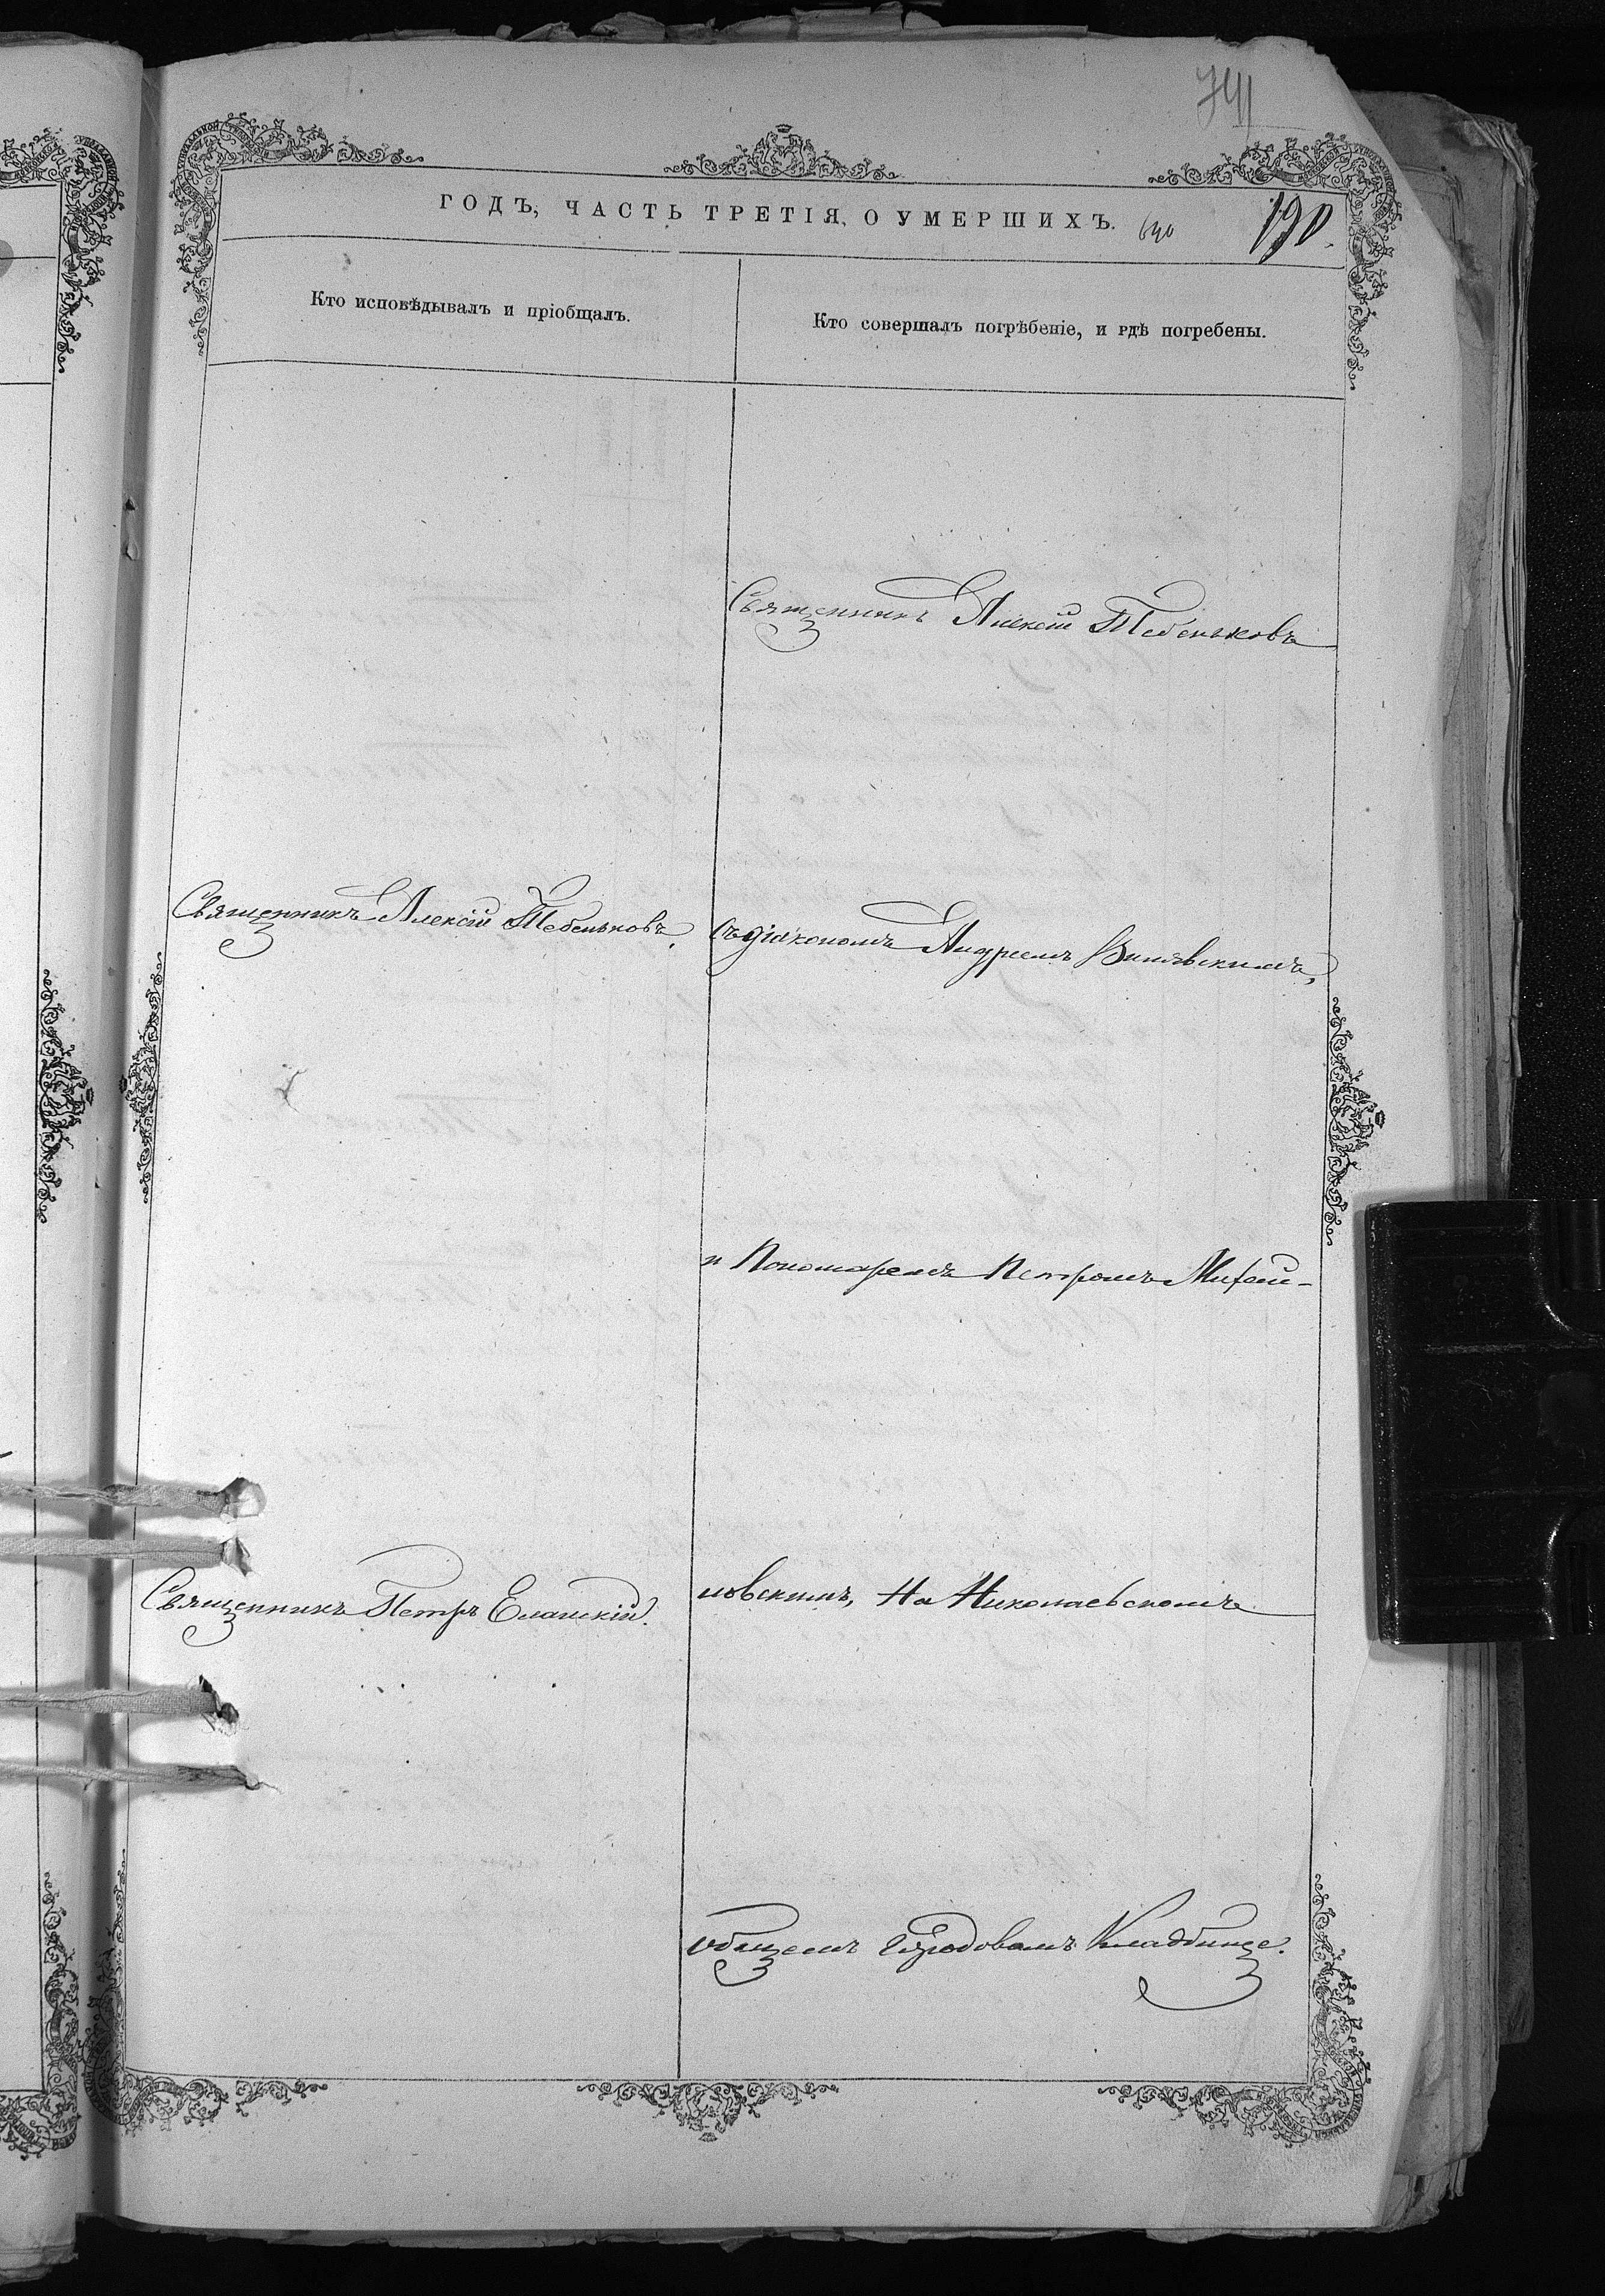 741
ГОДЪ, ЧАСТЬ ТРЕТІЯ, О УМЕРШИХЪ.
640
190.
Кто исповѣдывалъ и пріобщалъ.
Кто совершалъ погрѣбеніе, и гдѣ погребены.
Священникъ Алексій Тебеньковъ
Священникъ Алексій Тебеньковъ.
съ діакономъ Андреемъ
и Пономаремъ Петромъ
Священникъ Петръ
ловскимъ, На Николаевскомъ
общемъ городовомъ Кладбище.